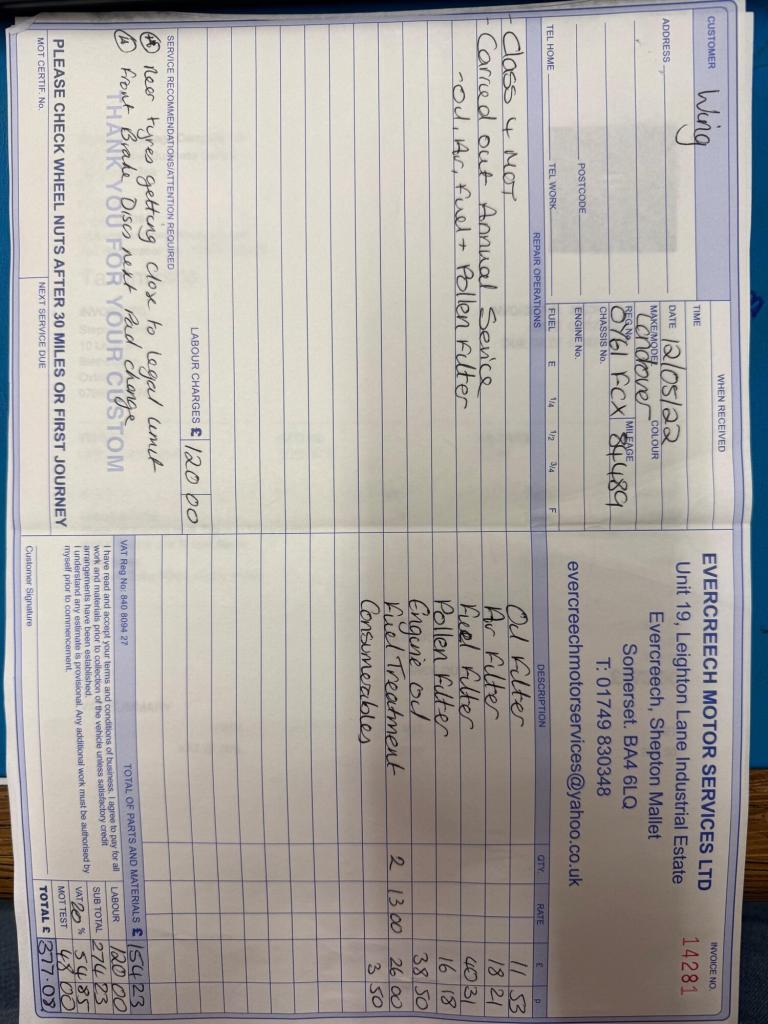 CUSTOMER Wing
ADDRESS
POSTCODE
TEL HOME TEL WORK
WHEN RECEIVED
TIME
DATE 12/05/22
MAKE/MODEL COLOUR
Landrover
REG No. MILEAGE
OY61 FCX 84489
CHASSIS No.
ENGINE No.
FUEL E 1/4 1/2 3/4 F
EVERCREECH MOTOR SERVICES LTD
Unit 19, Leighton Lane Industrial Estate
Evercreech, Shepton Mallet
Somerset. BA4 6LQ
T: 01749 830348
evercreechmotorservices@yahoo.co.uk
INVOICE NO.
14281
REPAIR OPERATIONS
- Class 4 MOT
- Carried out Annual Service
- Oil, Air, Fuel + Pollen Filter
LABOUR CHARGES £ 120 00
DESCRIPTION QTY. RATE £ p
Oil Filter 11 53
Air Filter 18 21
Fuel Filter 40 31
Pollen Filter 16 18
Engine Oil 38 50
Fuel Treatment 2 13 00 26 00
Consumerables 3 50
SERVICE RECOMMENDATIONS/ATTENTION REQUIRED
Rear tyres getting close to legal limit
Front Brake Discs next Pad change
THANK YOU FOR YOUR CUSTOM
PLEASE CHECK WHEEL NUTS AFTER 30 MILES OR FIRST JOURNEY
MOT CERTIF. No. NEXT SERVICE DUE
VAT Reg No: 840 8094 27
TOTAL OF PARTS AND MATERIALS £ 154 23
I have read and accept your terms and conditions of business. I agree to pay for all
work and materials prior to collection of the vehicle unless satisfactory credit
arrangements have been established.
I understand any estimate is provisional. Any additional work must be authorised by
myself prior to commencement.
Customer Signature
LABOUR 120 00
SUB TOTAL 274 23
VAT 20 % 54 85
MOT TEST 48 00
TOTAL £ 377.08